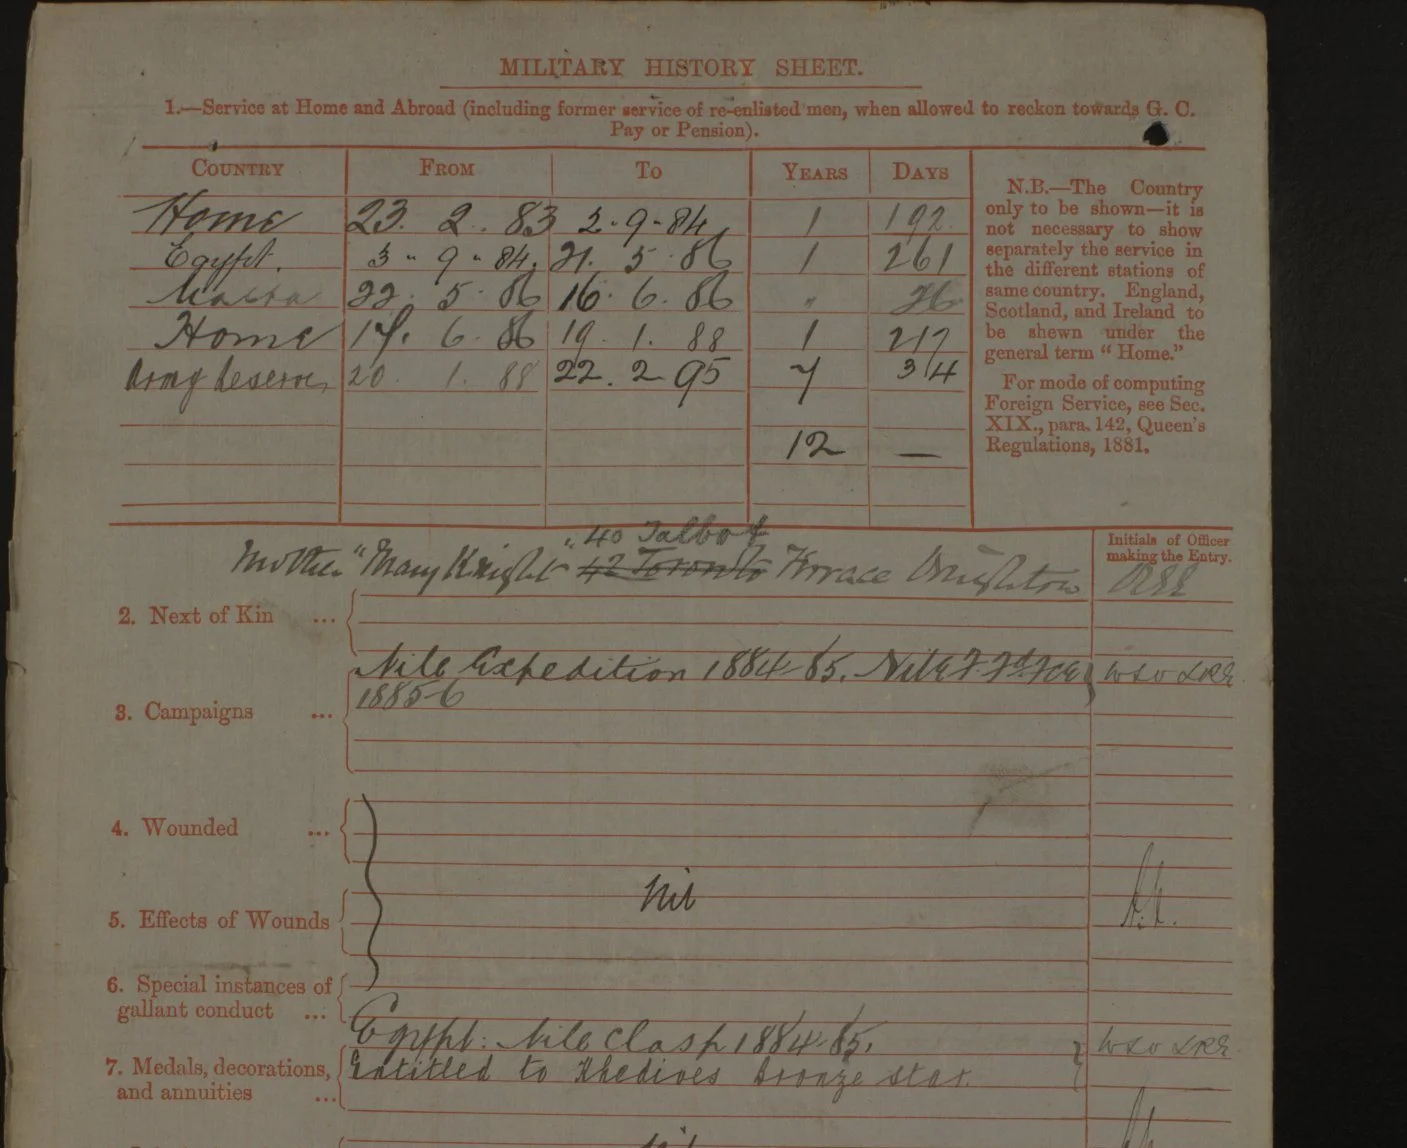 MILITARY HISTORY SHEET.
1.—Service at Home and Abroad (including former service of re-enlisted men, when allowed to reckon towards G. C.
Pay or Pension).
COUNTRY FROM TO YEARS DAYS
Home 23. 2. 83 2.9.84 1 192
Egypt. 3 " 9 " 84. 21. 5. 86 1 261
Malta 22. 5. 86 16. 6. 86 " 26
Home 17. 6. 86 19. 1. 88 1 217
Army Reserve 20. 1. 88 22. 2 95 7 34
12 —
N.B.—The Country
only to be shown—it is
not necessary to show
separately the service in
the different stations of
same country. England,
Scotland, and Ireland to
be shewn under the
general term "Home."
For mode of computing
Foreign Service, see Sec.
XIX., para. 142, Queen's
Regulations, 1881.
40 Talbot
Initials of Officer
making the Entry.
Mother "Mary Knight" 42 Toronto Terrace Brighton
2. Next of Kin ...
Nile Expedition 1884-85. Nile
1885-6
3. Campaigns ...
4. Wounded ...
Nil
5. Effects of Wounds
6. Special instances of
gallant conduct ...
Egypt: Nile Clasp 1884-85.
7. Medals, decorations,
and annuities ...
Entitled to Khedives bronze star.